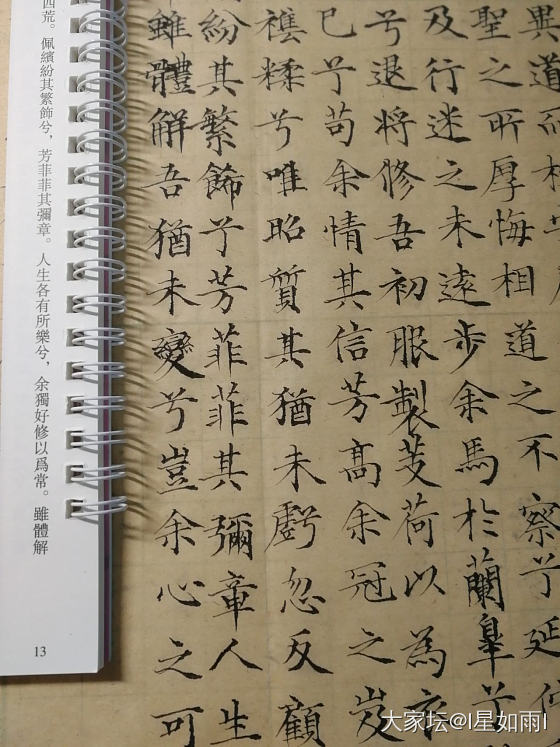 異道而相
聖之所厚悔相道之不察兮延佇
及行迷之未遠步余馬於蘭皋兮
兮退將修吾初服製芰荷以為衣
已兮苟余情其信芳高余冠之岌
襍糅兮唯昭質其猶未虧忽反顧
紛其繁飾兮芳菲菲其彌章人生
雖體解吾猶未變兮豈余心之可
四荒。佩繽紛其繁飾兮，芳菲菲其彌章。人生各有所樂兮，余獨好修以爲常。雖體解
13
大家坛@I星如雨I